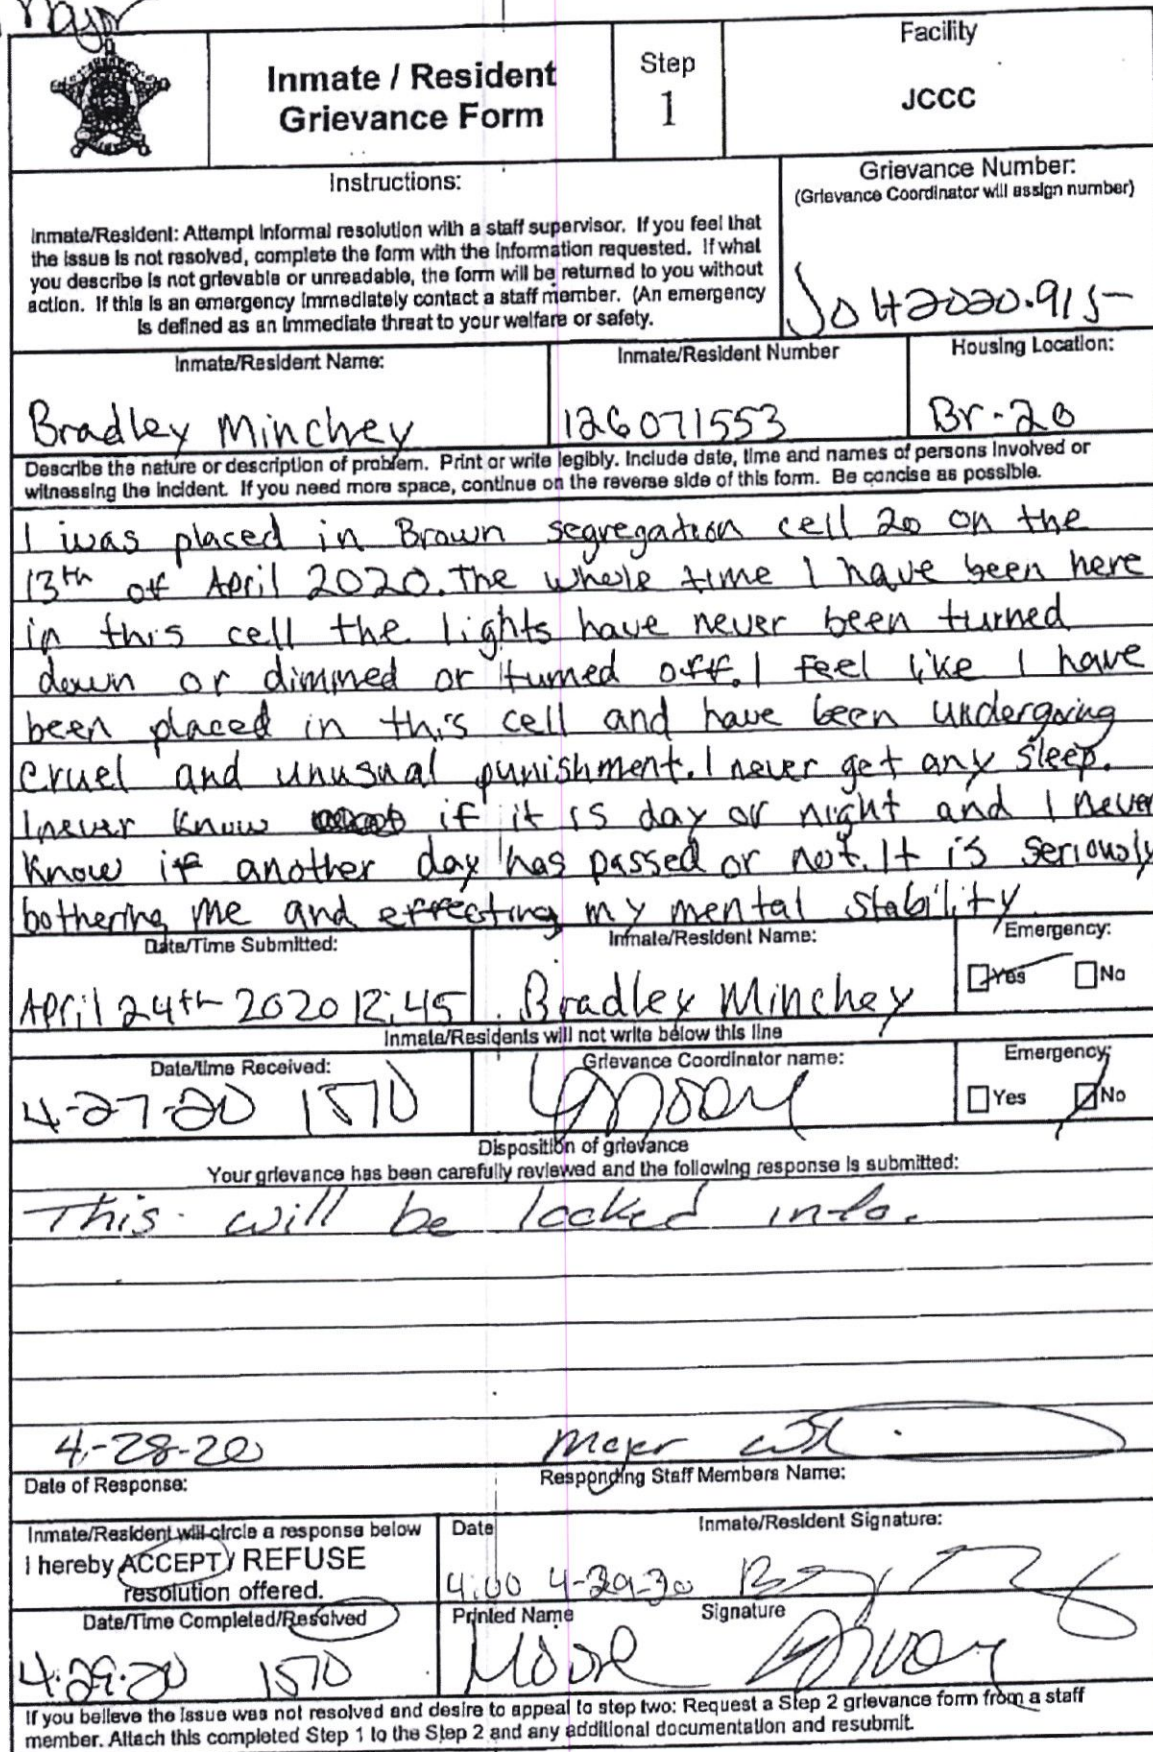 Major
Inmate / Resident
Grievance Form
Step
1
Facility
JCCC
Instructions:
Inmate/Resident: Attempt Informal resolution with a staff supervisor. If you feel that
the issue is not resolved, complete the form with the information requested. If what
you describe is not grievable or unreadable, the form will be returned to you without
action. If this is an emergency immediately contact a staff member. (An emergency
is defined as an immediate threat to your welfare or safety.
Grievance Number:
(Grievance Coordinator will assign number)
JOH2020.915
Inmate/Resident Name:
Bradley Minchey
Inmate/Resident Number
126071553
Housing Location:
Br-20
Describe the nature or description of problem. Print or write legibly. Include date, time and names of persons involved or
witnessing the incident. If you need more space, continue on the reverse side of this form. Be concise as possible.
I was placed in Brown segregation cell 20 on the
13th of April 2020. The whole time I have been here
in this cell the lights have never been turned
down or dimmed or turned off. I feel like I have
been placed in this cell and have been undergoing
cruel and unusual punishment. I never get any sleep.
I never know if it is day or night and I never
know if another day has passed or not. It is seriously
bothering me and effecting my mental stability.
Date/Time Submitted:
April 24th 2020 12:45
Inmate/Resident Name:
Bradley Minchey
Emergency:
Yes No
Inmate/Residents will not write below this line
Date/time Received:
4-27-20
Grievance Coordinator name:
Emergency:
Yes No
Disposition of grievance
Your grievance has been carefully reviewed and the following response is submitted:
This will be looked into.
4-28-20
Major
Date of Response:
Responding Staff Members Name:
Inmate/Resident will circle a response below
I hereby ACCEPT / REFUSE
resolution offered.
Date
4:00
Inmate/Resident Signature:
Date/Time Completed/Resolved
4-29-20
Printed Name
Signature
If you believe the issue was not resolved and desire to appeal to step two: Request a Step 2 grievance form from a staff
member. Attach this completed Step 1 to the Step 2 and any additional documentation and resubmit.